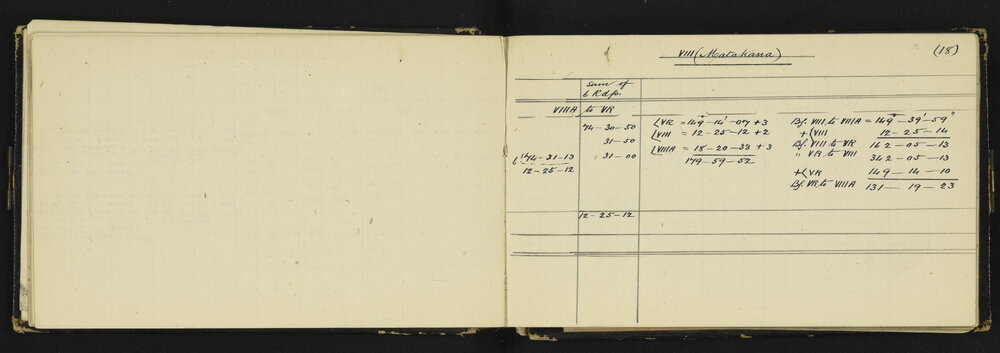 VIII (Matakana)
(18)
Sum of
6 Rdgs.
VIIIA to VR
74-30-50
31-50
6 | 74-31-13
31-00
12-25-12
12-25-12
∠VR = 149°-14'-07 +3
∠VIII = 12-25-12 +2
∠VIIIA = 18-20-33 +3
179-59-52
Bg. VIII to VIIIA = 149°-39'-59"
+∠VIII 12-25-14
Bg. VIII to VR 162-05-13
" VR to VIII 342-05-13
+∠VR 149-14-10
Bg. VR to VIIIA 131-19-23